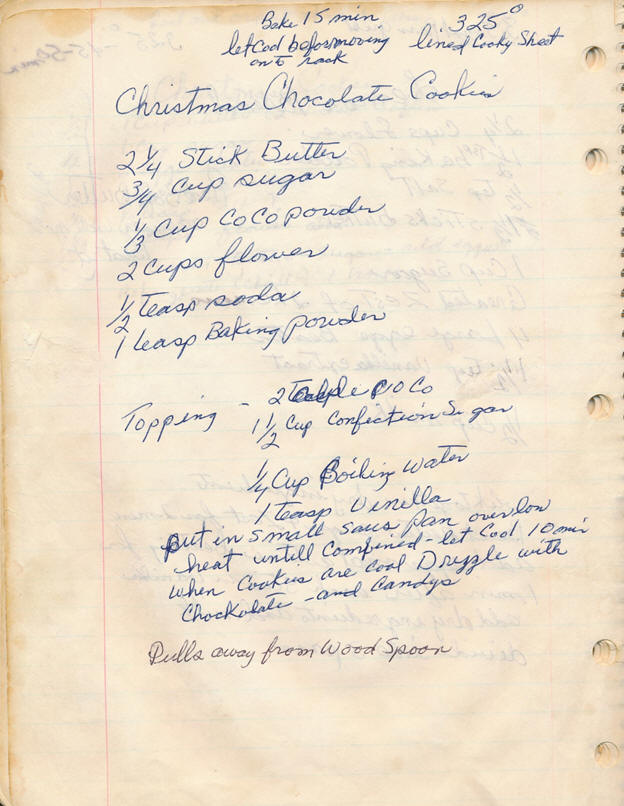 Bake 15 min 325°
let Cool before moving lined Cooky Sheet
onto rack
Christmas Chocolate Cookies
2 1/4 Stick Butter
3/4 Cup sugar
1/3 Cup CoCo powder
2 Cups flower
1/2 Teasp soda
1 teasp Baking powder
Topping - 2 Table CoCo
1 1/2 Cup Confiction Sugar
1/4 Cup Boiling Water
1 Teasp Vinilla
put in small saus pan over low
heat untill Combined - let Cool 10 min
when Cookies are cool Drizzle with
Chockolate - and Candys
Pulls away from Wood Spoon